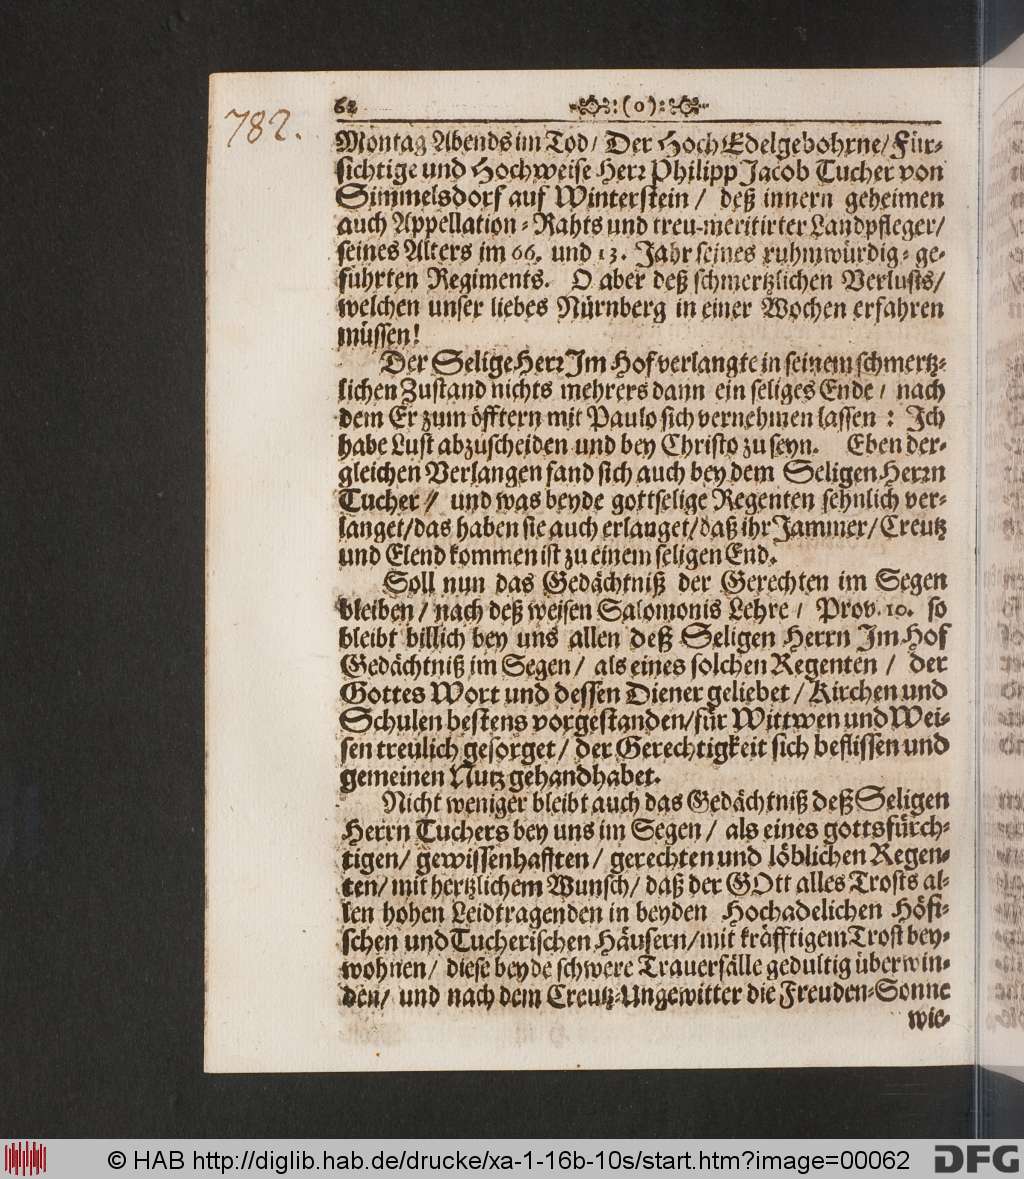 782.
62 :(0):
Montag Abends im Tod/ Der HochEdelgebohrne/ Für-
sichtige und Hochweise Herr Philipp Jacob Tucher von
Simmelsdorf auf Winterstein/ deß innern geheimen
auch Appellation-Rahts und treu-meritirter Landpfleger/
seines Alters im 66. und 13. Jahr seines ruhmwürdig-ge-
führten Regiments. O aber deß schmertzlichen Verlusts/
welchen unser liebes Nürnberg in einer Wochen erfahren
müssen!
Der Selige Herr Im Hof verlangte in seinem schmertz-
lichen Zustand nichts mehrers dann ein seliges Ende/ nach
dem Er zum öfftern mit Paulo sich vernehmen lassen: Ich
habe Lust abzuscheiden und bey Christo zu seyn. Eben der-
gleichen Verlangen fand sich auch bey dem Seligen Herrn
Tucher/ und was beyde gottselige Regenten sehnlich ver-
langet/ das haben sie auch erlanget/ daß ihr Jammer/ Creutz
und Elend kommen ist zu einem seligen End.
Soll nun das Gedächtniß der Gerechten im Segen
bleiben/ nach deß weisen Salomonis Lehre/ Prov. 10. so
bleibt billich bey uns allen deß Seligen Herrn Im Hof
Gedächtniß im Segen/ als eines solchen Regenten/ der
Gottes Wort und dessen Diener geliebet/ Kirchen und
Schulen bestens vorgestanden/ für Wittwen und Wei-
sen treulich gesorget/ der Gerechtigkeit sich beflissen und
gemeinen Nutz gehandhabet.
Nicht weniger bleibt auch das Gedächtniß deß Seligen
Herrn Tuchers bey uns im Segen/ als eines gottsfürch-
tigen/ gewissenhafften/ gerechten und löblichen Regen-
ten/ mit hertzlichem Wunsch/ daß der GOtt alles Trosts al-
len hohen Leidtragenden in beyden Hochadelichen Höfi-
schen und Tucherischen Häusern/ mit kräfftigem Trost bey-
wohnen/ diese beyde schwere Trauerfälle gedultig überwin-
den/ und nach dem Creutz-Ungewitter die Freuden-Sonne
wie-
© HAB http://diglib.hab.de/drucke/xa-1-16b-10s/start.htm?image=00062
DFG